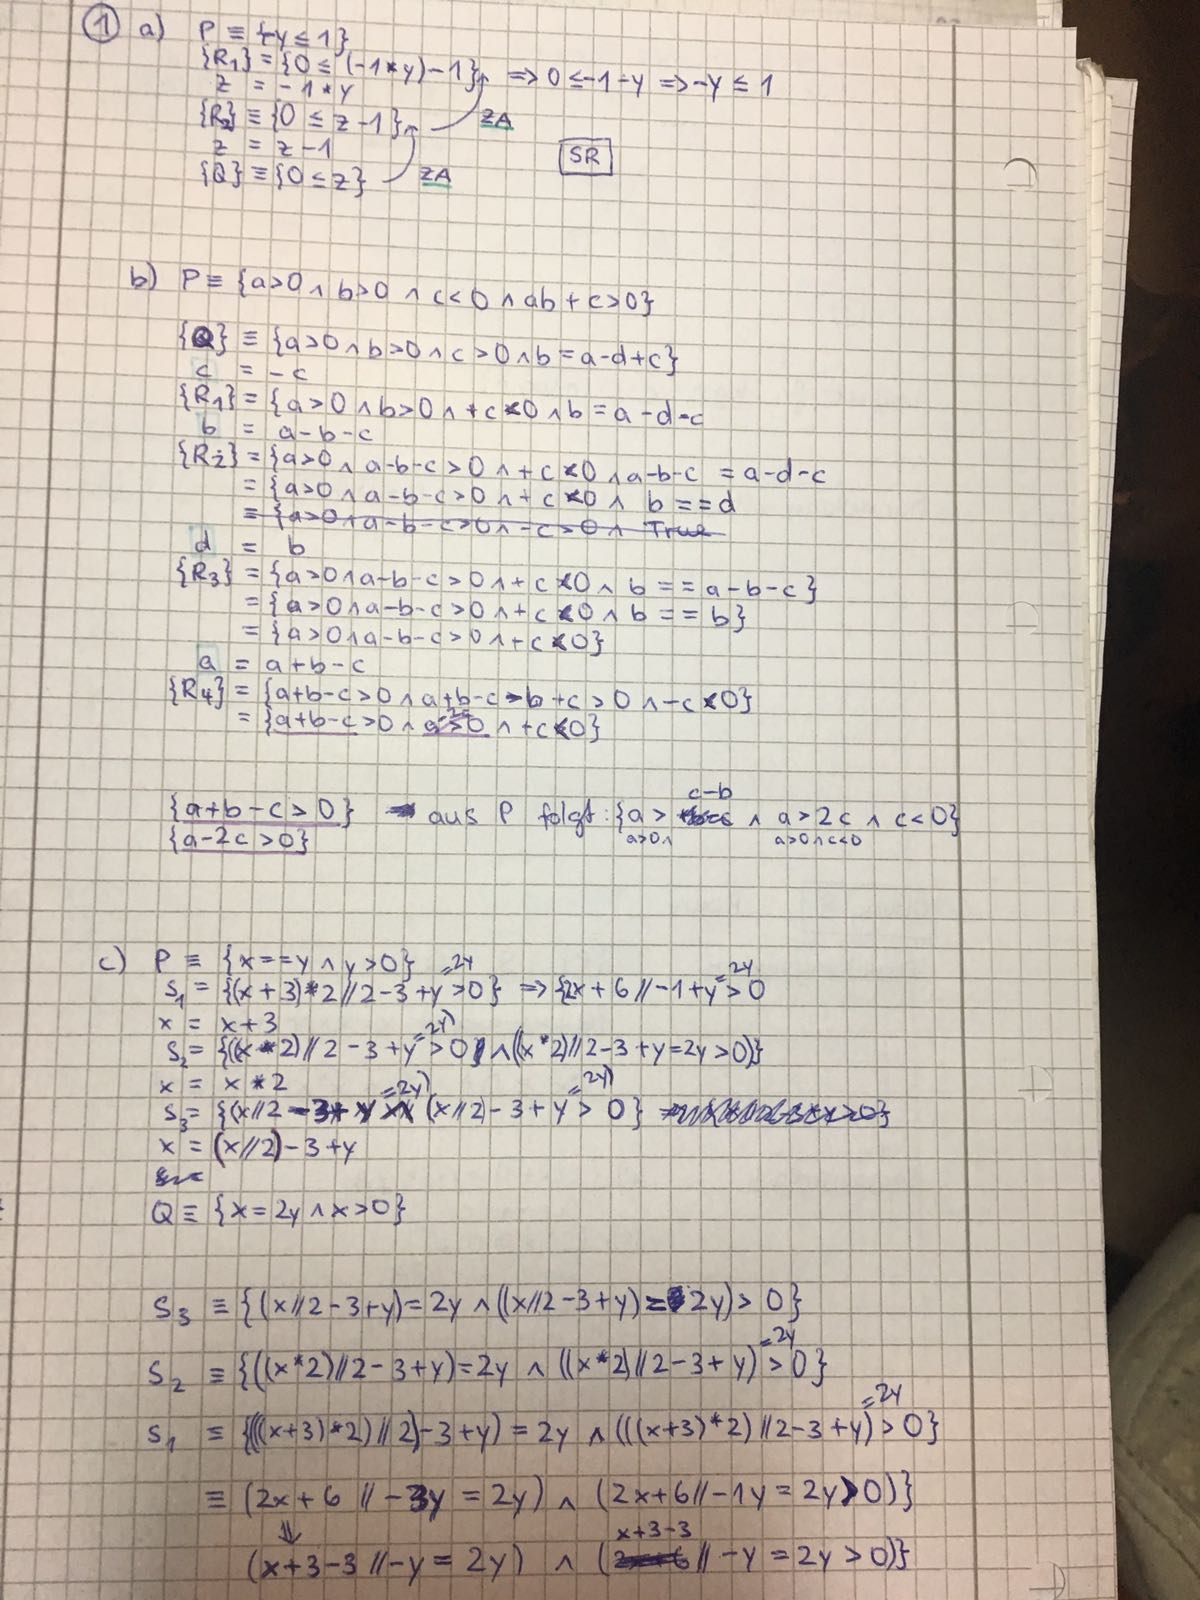 ① a) P ≡ {-y ≤ 1}
{R₁} = {0 ≤ (-1*y) - 1} ⇒ 0 ≤ -1 - y ⇒ -y ≤ 1
z = -1 * y
{R₂} ≡ {0 ≤ z - 1} ZA
z = z - 1
SR
{Q} ≡ {0 ≤ z} ZA
b) P ≡ {a>0 ∧ b>0 ∧ c<0 ∧ ab + c>0}
{Q} ≡ {a>0 ∧ b>0 ∧ c>0 ∧ b = a-d+c}
c = -c
{R₁} = {a>0 ∧ b>0 ∧ +c<0 ∧ b = a-d-c
b = a-b-c
{R₂} = {a>0 ∧ a-b-c>0 ∧ +c<0 ∧ a-b-c = a-d-c
= {a>0 ∧ a-b-c>0 ∧ +c<0 ∧ b == d
≡ {a>0 ∧ a-b-c>0 ∧ -c>0 ∧ True
d = b
{R₃} = {a>0 ∧ a-b-c>0 ∧ +c<0 ∧ b == a-b-c}
= {a>0 ∧ a-b-c>0 ∧ +c<0 ∧ b == b}
= {a>0 ∧ a-b-c>0 ∧ +c<0}
a = a+b-c
{R₄} = {a+b-c>0 ∧ a+b-c-b+c>0 ∧ -c<0}
= {a+b-c>0 ∧ a-2c>0 ∧ +c<0}
c-b
{a+b-c>0} → aus P folgt: {a> ∧ a>2c ∧ c<0}
{a-2c>0} a>0∧ a>0∧c<0
c) P ≡ {x==y ∧ y>0} =2y =2y
S₁ = {(x+3)*2//2-3+y>0} ⇒ {2x+6//-1+y>0
x = x+3 =2y)
S₂ = {((x*2)//2-3+y>0) ∧ ((x*2)//2-3+y=2y>0)}
x = x*2 =2y) =2y)
S₃ = {(x//2-3+y (x//2)-3+y>0}
x = (x//2)-3+y
Q ≡ {x=2y ∧ x>0}
S₃ ≡ {(x//2-3+y)=2y ∧ ((x//2-3+y)=2y)>0}
=2y
S₂ ≡ {((x*2)//2-3+y)=2y ∧ ((x*2)//2-3+y)>0}
=2y
S₁ ≡ {(((x+3)*2)//2)-3+y)=2y ∧ (((x+3)*2)//2-3+y)>0}
≡ (2x+6//-3y=2y) ∧ (2x+6//-1y=2y>0)}
⇓ x+3-3
(x+3-3//-y=2y) ∧ (2x+6//-y=2y>0)}